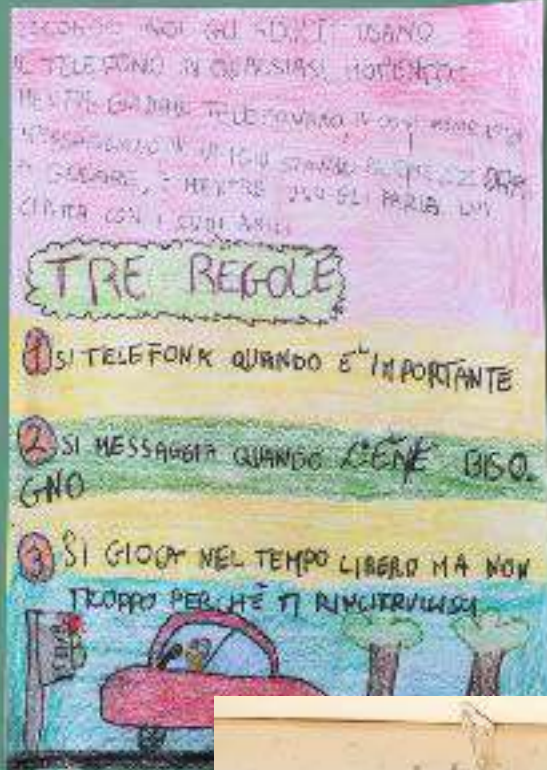 SECONDO NOI GLI ADULTI USANO
IL TELEFONO IN QUALSIASI MOMENTO:
MENTRE GUIDANO TELEFONANO, IN OGNI MOMENTO
MESSAGGIANO
A GIOCARE, E MENTRE PARLA LUI
CHATTA CON I SUOI AMICI
TRE REGOLE
1 SI TELEFONA QUANDO E' IMPORTANTE
2 SI MESSAGGIA QUANDO C'E NE BISO
GNO
3 SI GIOCA NEL TEMPO LIBERO MA NON
TROPPO PERCHÈ TI RINCITRULLISCI